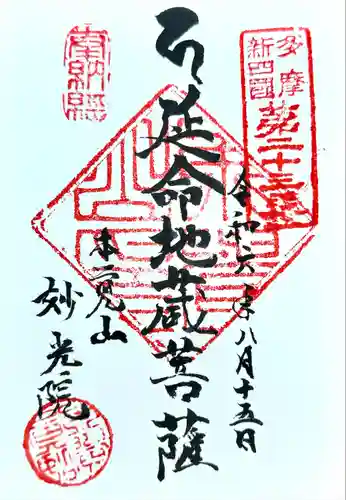 多摩
新四國
第二十三番
令和六年八月十五日
延命地蔵菩薩
奉納経
本覚山
妙光院